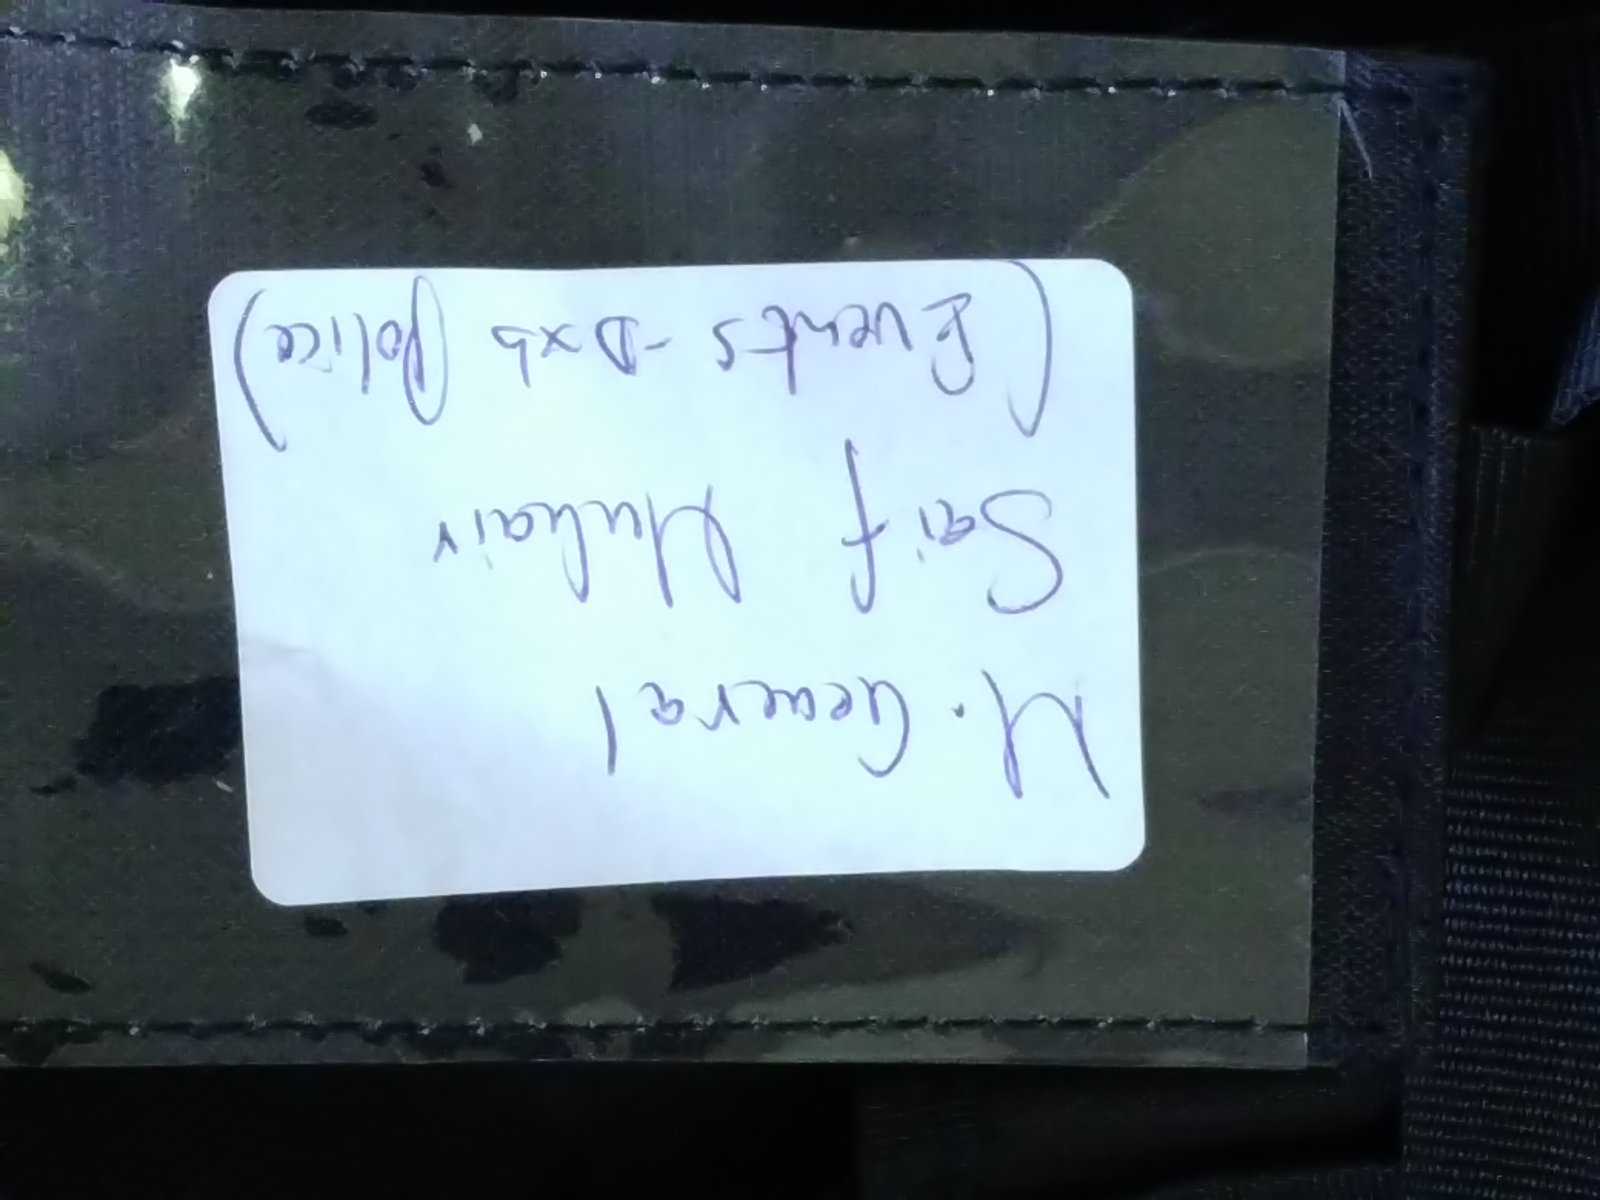 M. General
Saif Muhair
(Events - Dxb Police)